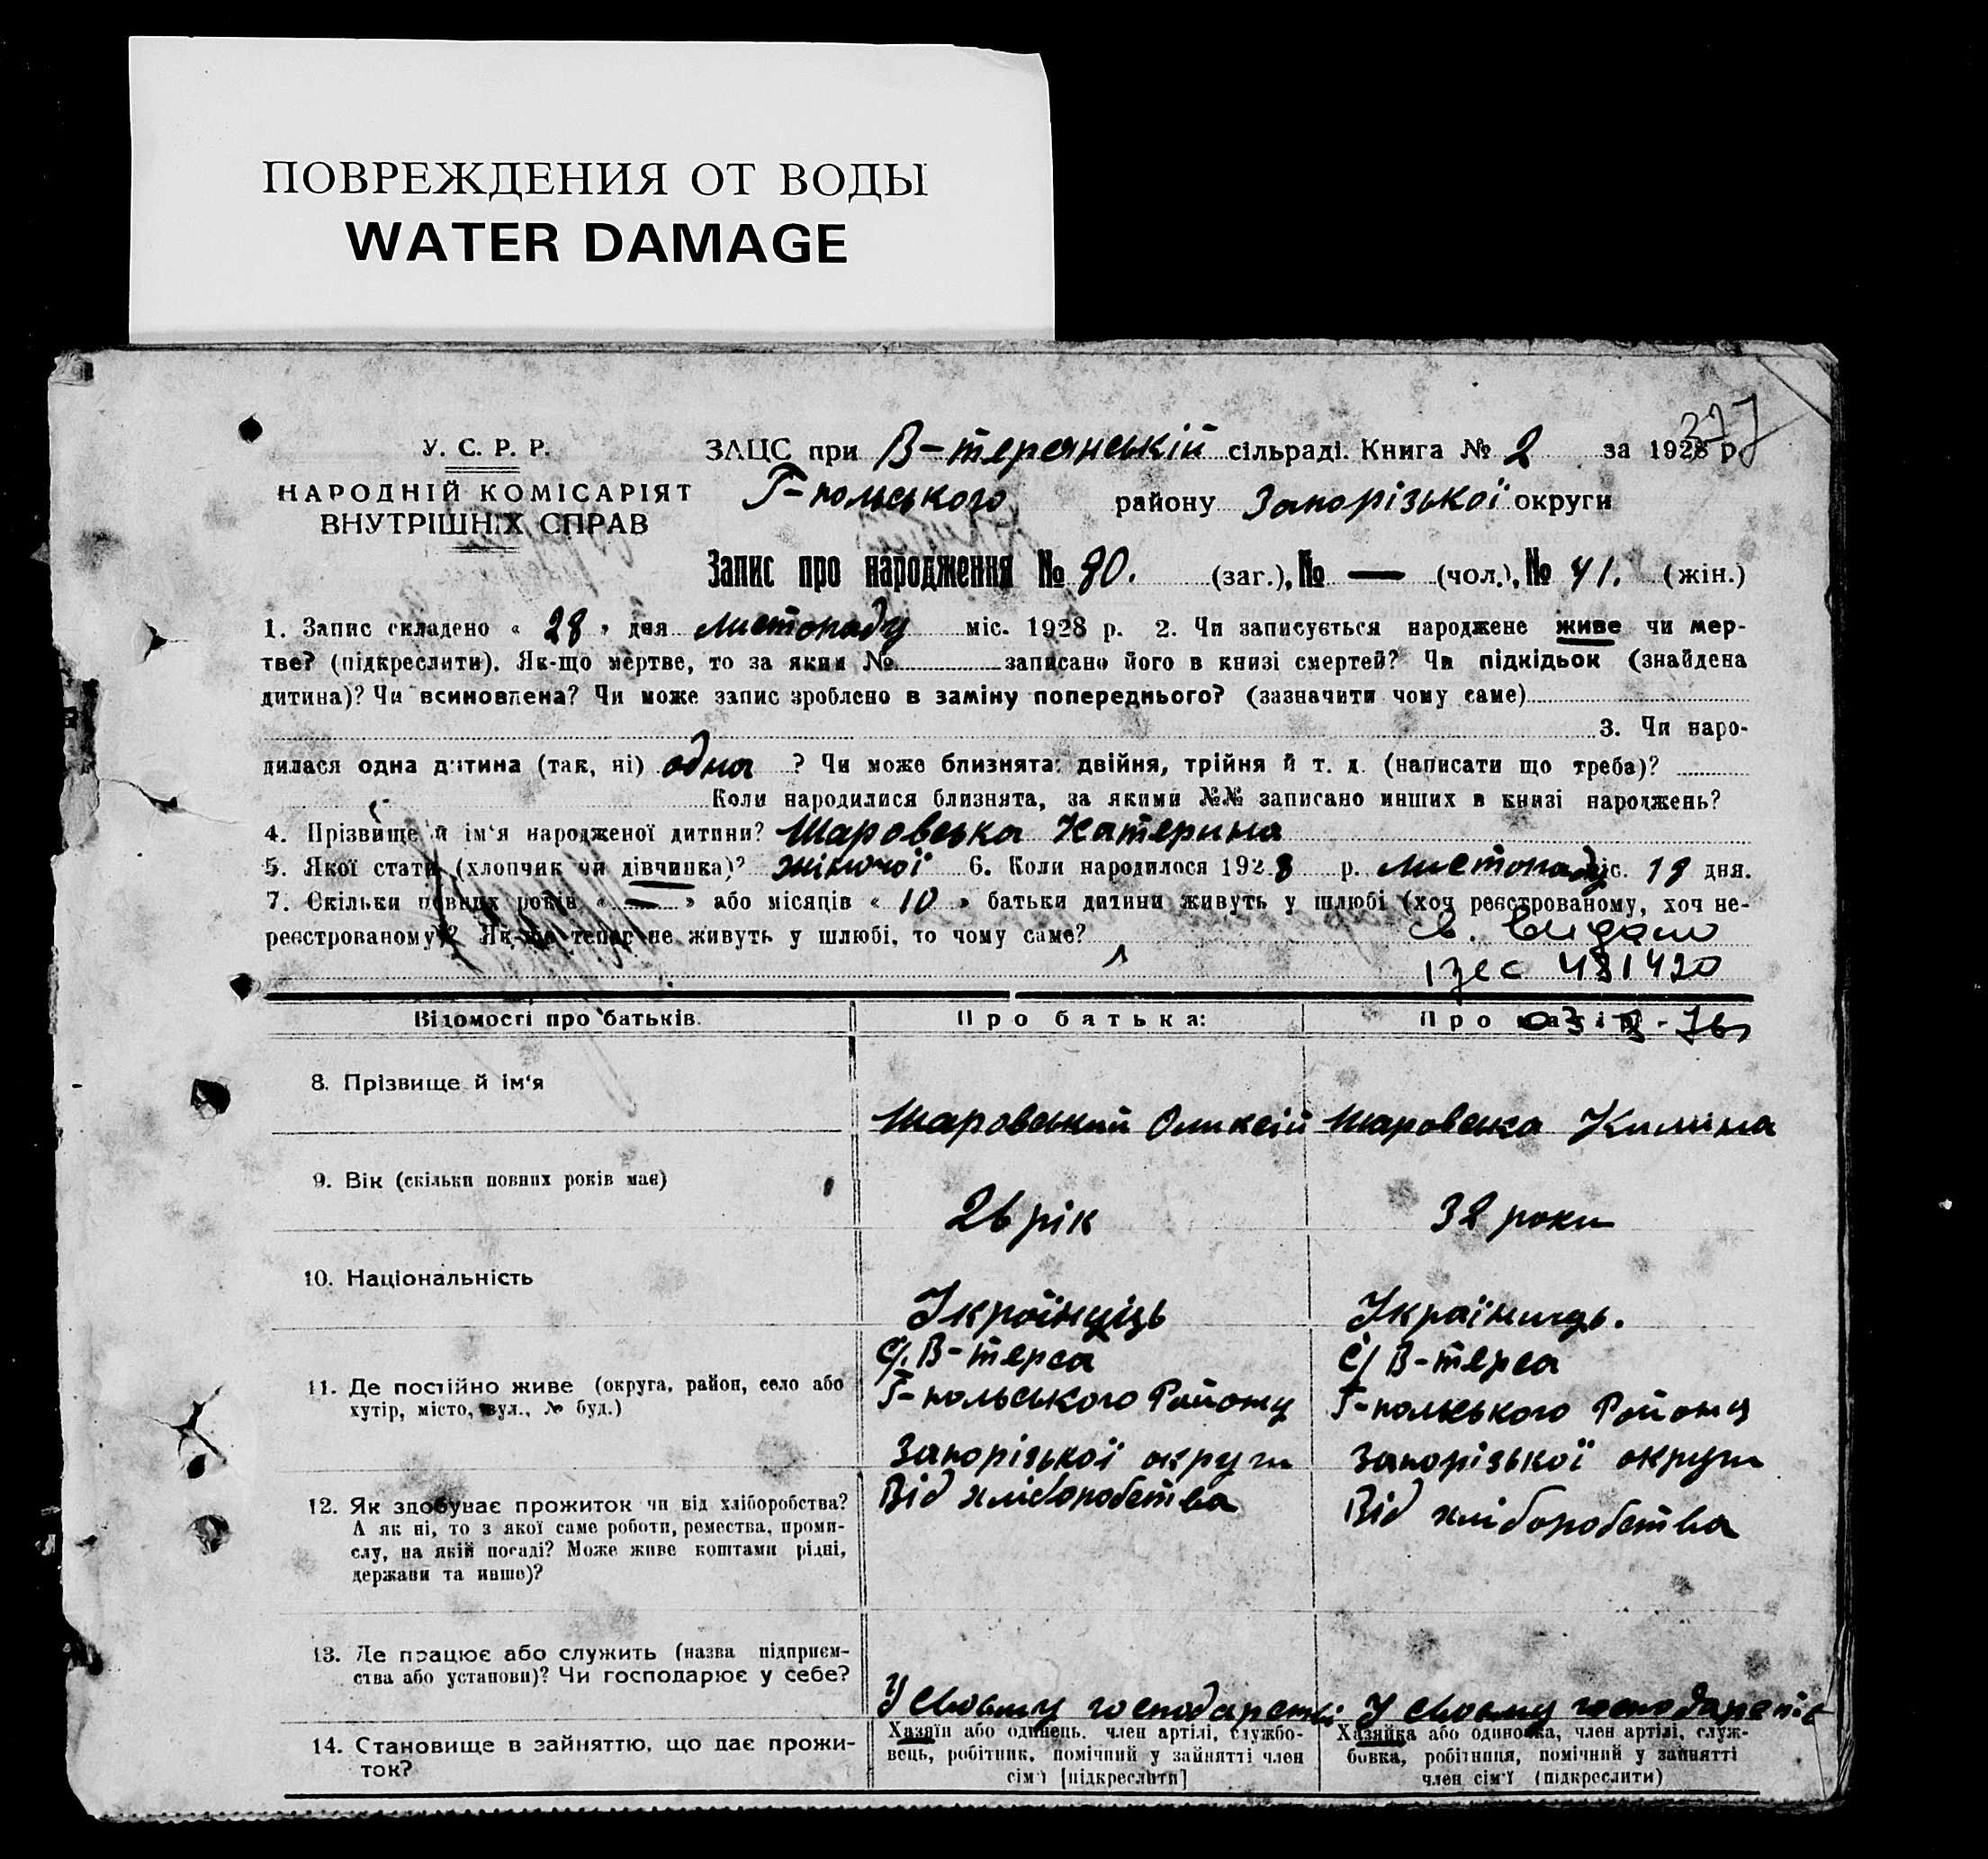 ПОВРЕЖДЕНИЯ ОТ ВОДЫ
WATER DAMAGE
377
У. С. Р. Р.
НАРОДНІЙ КОМІСАРІЯТ
ВНУТРІШНІХ СПРАВ
ЗАЦС при В-терсянській сільраді. Книга № 2 за 1928 р.
Г-польського району Запорізької округи
Запис про народження № 80. (заг.), № — (чол.), № 41. (жін.)
1. Запис складено « 28 » дня листопаду міс. 1928 р. 2. Чи записується народжене живе чи мер-
тве? (підкреслити). Як-що мертве, то за яким № записано його в книзі смертей? Чи підкідьок (знайдена
дитина)? Чи всиновлена? Чи може запис зроблено в заміну попереднього? (зазначити чому саме)
3. Чи наро-
дилася одна дитина (так, ні) одна ? Чи може близнята: двійня, трійня й т. д. (написати що треба)?
Коли народилися близнята, за якими №№ записано инших в книзі народжень?
4. Прізвище й ім'я народженої дитини? Шаровська Катерина
5. Якої стати (хлопчик чи дівчинка)? жіночої 6. Коли народилося 1928 р. листопаду міс. 18 дня.
7. Скільки повних років « — » або місяців « 10 » батьки дитини живуть у шлюбі (хоч реєстрованому, хоч не-
реєстрованому)? Як-що тепер не живуть у шлюбі, то чому саме?
св. видано
481420
Відомості про батьків.
Про батька:
Про матір
8. Прізвище й ім'я
Шаровський Оликсій
Шаровська Килина
9. Вік (скільки повних років має)
26 рік
32 роки
10. Національність
Українціць
Україниць.
11. Де постійно живе (округа, район, село або
хутір, місто, вул., № буд.)
с/. В-терса
Г-польського Району
Запорізької округи
с/ В-терса
Г-польського Району
Запорізької округи
12. Як здобуває прожиток чи від хліборобства?
А як ні, то з якої саме роботи, ремества, проми-
слу, на якій посаді? Може живе коштами рідні,
держави та инше)?
Від хліборобства
Від хліборобства
13. Де працює або служить (назва підприєм-
ства або установи)? Чи господарює у себе?
У своьму господарстві
У своьму господарстві
14. Становище в зайняттю, що дає прожи-
ток?
Хазяїн або одинець, член артілі, службо-
вець, робітник, помічний у зайнятті член
сім'ї [підкреслити]
Хазяйка або одиночка, член артілі, служ-
бовка, робітниця, помічний у зайнятті
член сім'ї (підкреслити)